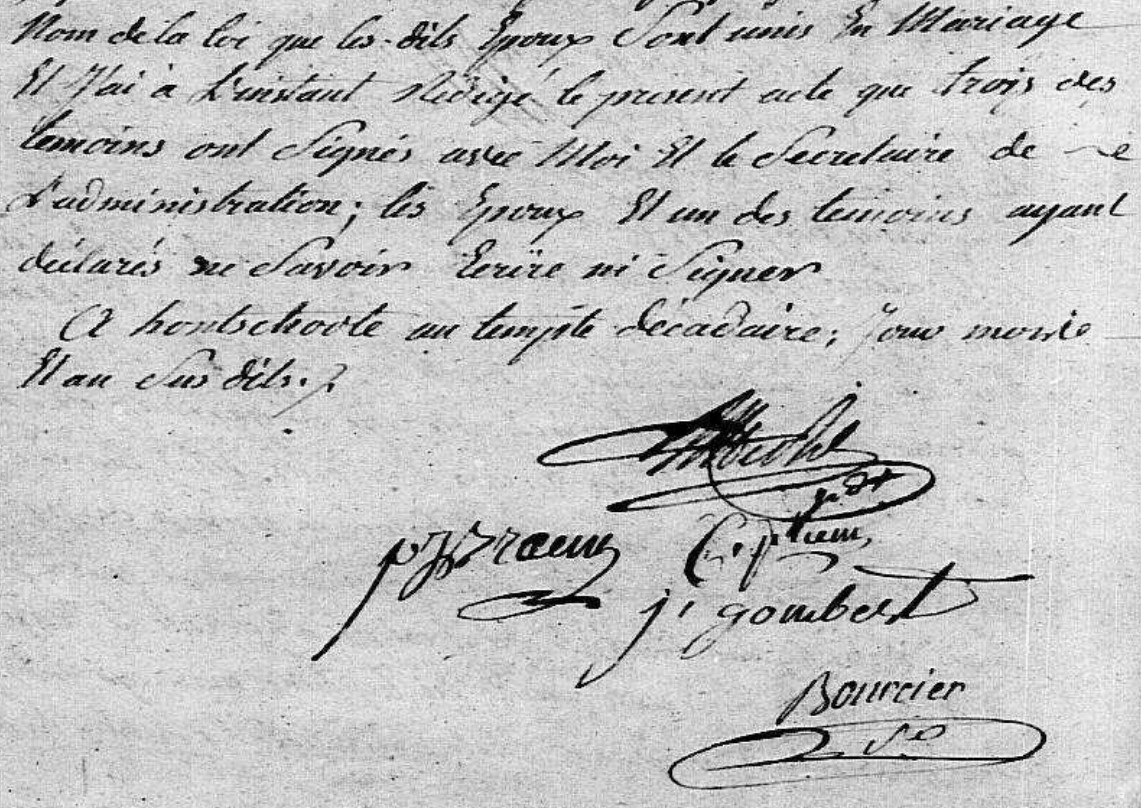 Nom de la loi que les-dits Epoux Sont unis En Mariage
Et J'ai à L'instant Rédigé le présent acte que trois des
temoins ont Signés avec Moi Et le Secretaire de
L'administration; les Epoux Et un des temoins ayant
déclarés ne Savoir Ecrire ni Signer
A hontschoote au temple décadaire, Jour mois
Et an Sus dits./.
pdt
j: gombert
Bourcier